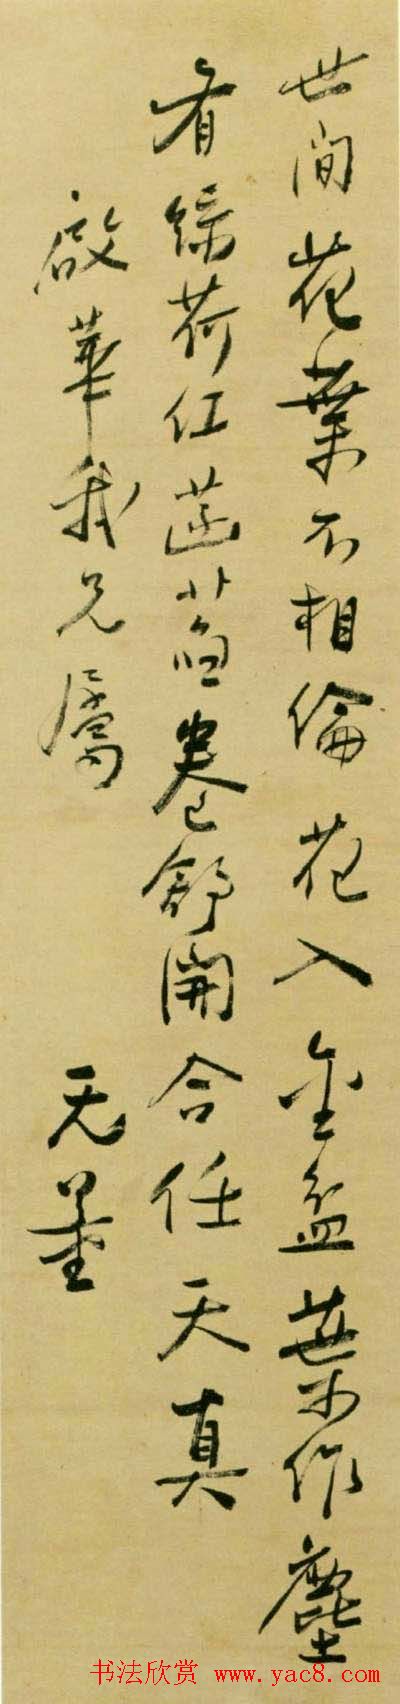 世間花葉不相倫花入金盆葉作塵
有綠荷紅菡萏卷舒開合任天真
啟華我兄屬 无量
书法欣赏 www.yac8.com